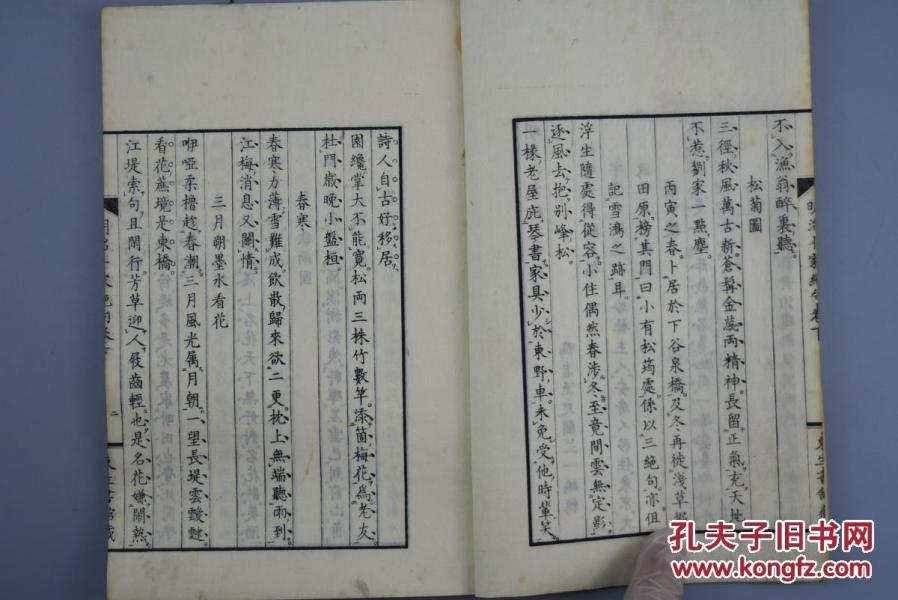 不入漁翁醉裏聽
松菊圖
三徑秋風萬古新蒼髯金蕊両精神長留正氣充天地
不惹劉家一點塵
丙寅之春卜居於下谷泉橋及冬再徙淺草
田原榜其門曰小有松筠處係以三絕句亦但
記雪鴻之跡耳
浮生隨處得從容小住偶然春涉冬至竟間雲無定影
逐風去抱別峰松
一椽老屋庇琴書家具少於東野車未免受他時輩笑
詩人自古好移居
園纔掌大不能寛松両三株竹數竿添箇梅花為老友
杜門歲晚小盤桓
春寒
春寒力薄雪難成飲散歸來欲二更枕上無端聽雨到
江梅消息又關情
三月朔墨水看花
咿啞柔櫓趁春潮三月風光属月朝一望長堤雲靉靆
看花蕪境是東橋
江堤索句且閒行芳草迎人屐齒輕也是名花嫌鬧熱
二
孔夫子旧书网
www.kongfz.com